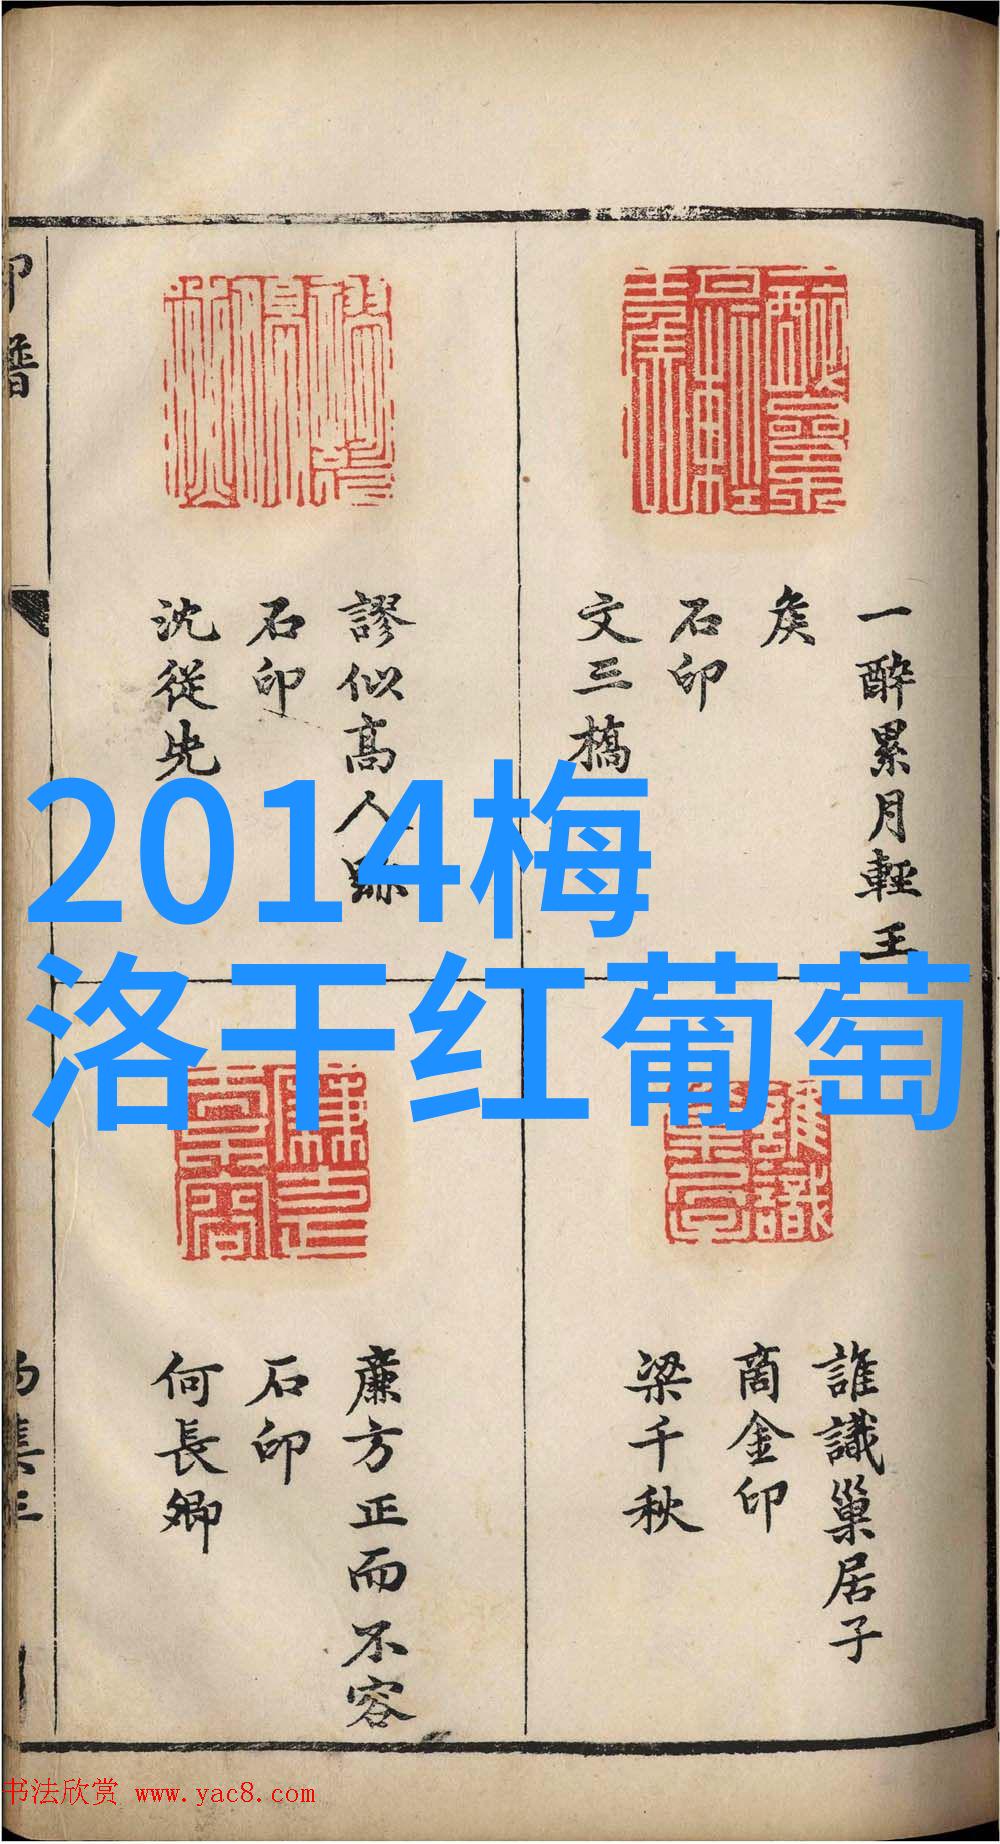 2014梅
洛干红葡萄
一醉累月輕王
矦
石印
文三橋
謬似高人
石印
沈從先
誰識巢居子
商金印
梁千秋
廉方正而不容
石印
何長卿
印譜
书法欣赏 www.yac8.com